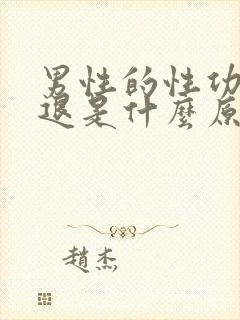 男性的性功
退是什麼原
趙杰